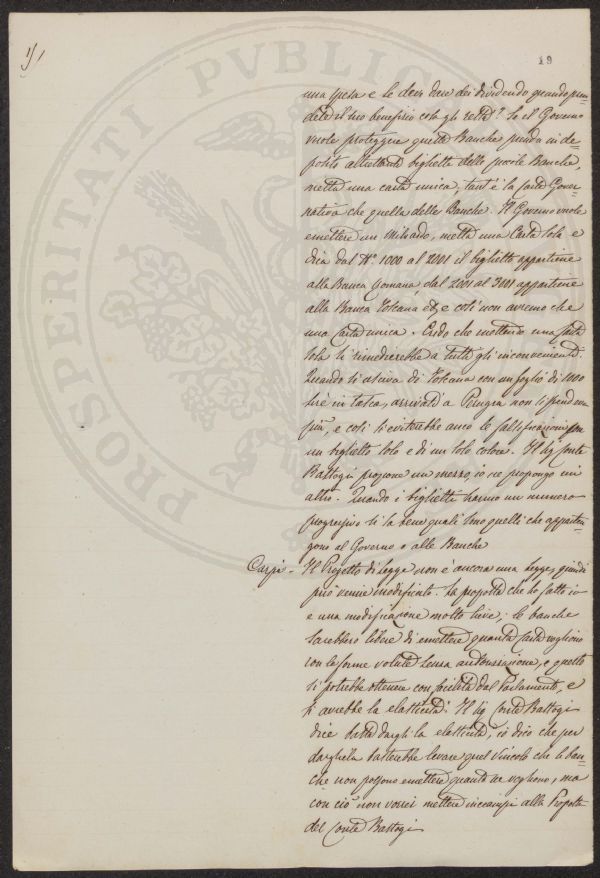 1/1
19
PROSPERITATI PUBLICAE
una spesa e le deve dare dei dividendo quando pren-
dete il suo beneficio cosa gli resta? Se il Governo
vuole proteggere queste Banche prenda in de=
posito altrettanti biglietti delle piccole Banche,
metta una carta unica, tant'è la carta Gover
nativa che quella delle Banche. Il Governo vuole
emettere un Miliardo, metta una Carta sola e
dica dal N° 1000 al 2001 il biglietto appartiene
alla Banca Romana dal 2001 al 3001 appartiene
alla Banca Toscana e così non avremo che
una Carta unica. Credo che mettendo una Carta
sola si rimedierebbe a tutti gli inconvenienti.
Quando si usciva di Toscana con un foglio di 1000
lire in tasca, arrivati a Perugia non si prendeva
più, e così si eviterebbe anco le falsificazioni con
un biglietto solo e di un solo colore. Il Sig Conte
Bastogi propone un mezzo, io ne propongo un
altro. Quando i biglietti hanno un numero
progressivo si sa bene quali sono quelli che apparten-
gono al Governo o alle Banche
Carpi - Il Progetto di legge non è ancora una legge, quindi
può venire modificato. La proposta che ho fatto io
è una modificazione molto lieve; le banche
sarebbero libere di emettere quanta Carta vogliono
con le forme volute senza autorizzazione, e questo
si potrebbe ottenere con facilità dal Parlamento, e
si avrebbe la elasticità. Il Sig Conte Bastogi
dice basta dargli la elasticità, io dico che per
dargliela basterebbe levare quel vincolo che le ban=
che non possono emettere quanta ne vogliono, ma
con ciò non vorrei mettere inciampi alla Proposta
del Conte Bastogi